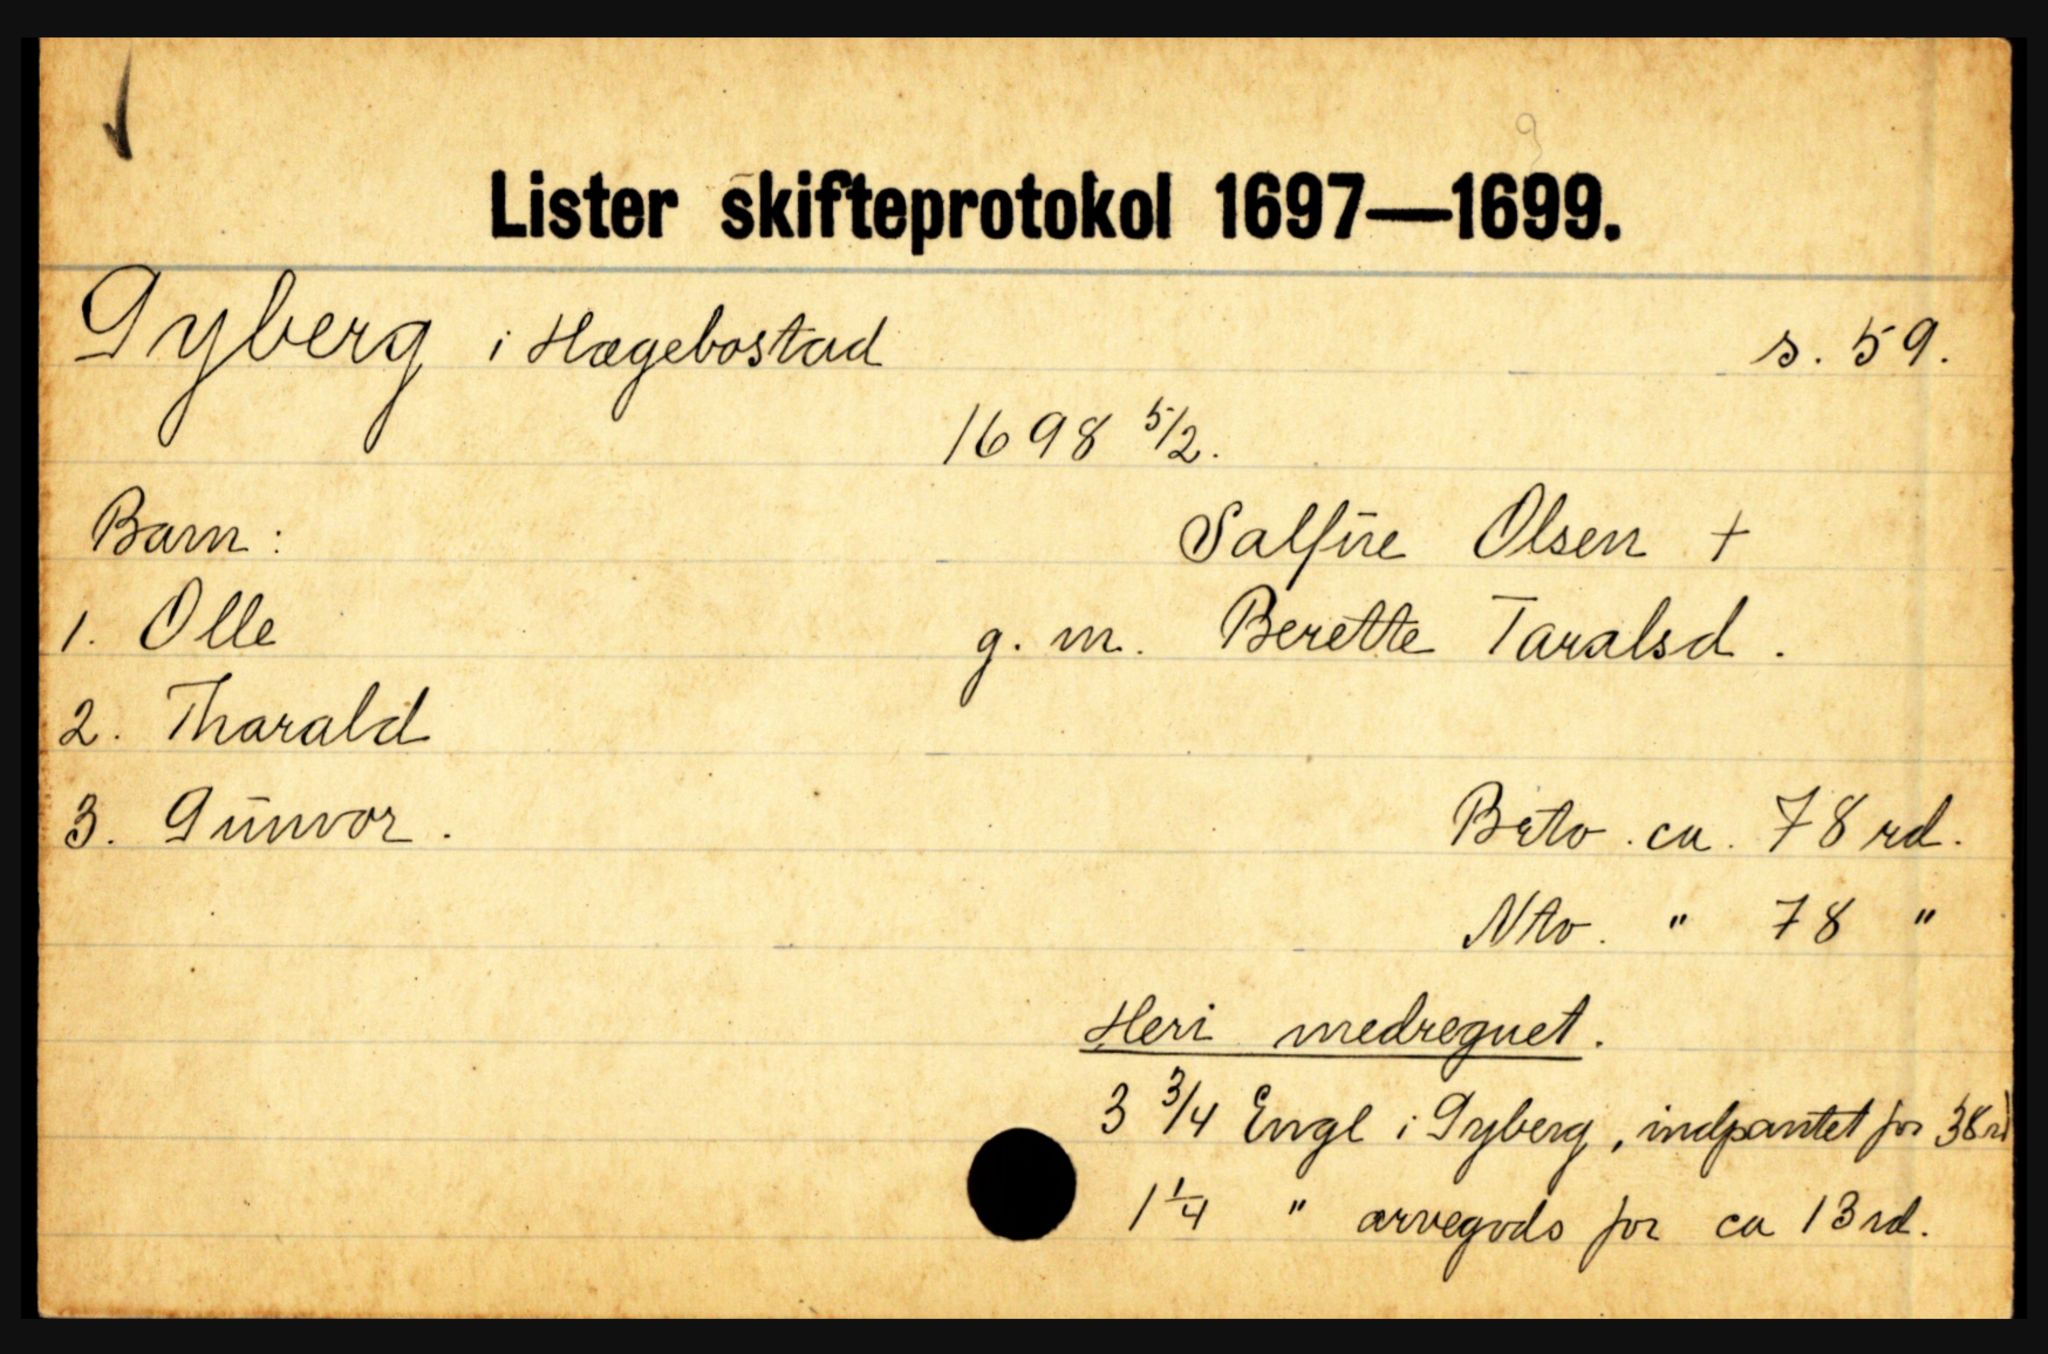 9
Lister skifteprotokol 1697—1699.
Gyberg i Hægebostad s. 59.
1698 5/2.
Barn: Salfue Olsen +
1. Olle g. m. Berette Taralsd.
2. Tharald
3. Gunvor. Brto. ca. 78 rd.
Nto. " 78 "
Heri medregnet.
3 3/4 Engl i Gyberg, indpantet for 38 rd
1 1/4 " arvegods for ca 13 rd.